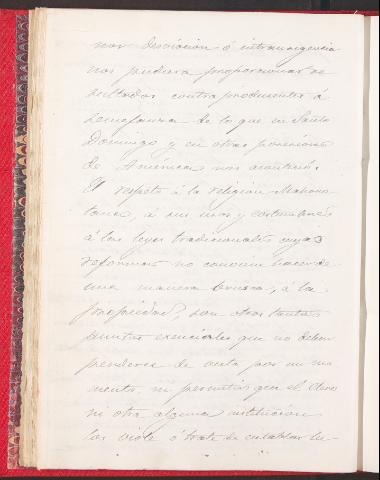 nor desviación ó intransigencia
nos pudiera proporcionar re
sultados contraproducentes á
semejanza de lo que en Santo
Domingo y en otras posesiones
de América nos aconteció.
El respeto á la religion Mahome
tana, á sus usos y costumbres
á las leyes tradicionales cuyas
reformas no convien hacer de
una manera brusca, á la
propiedad, son otros tantos
puntos esenciales que no deben
perderse de vista por un mo
mento, ni permitir que el Clero
ni otra alguna institucion
los viole ó trate de entablar lu-